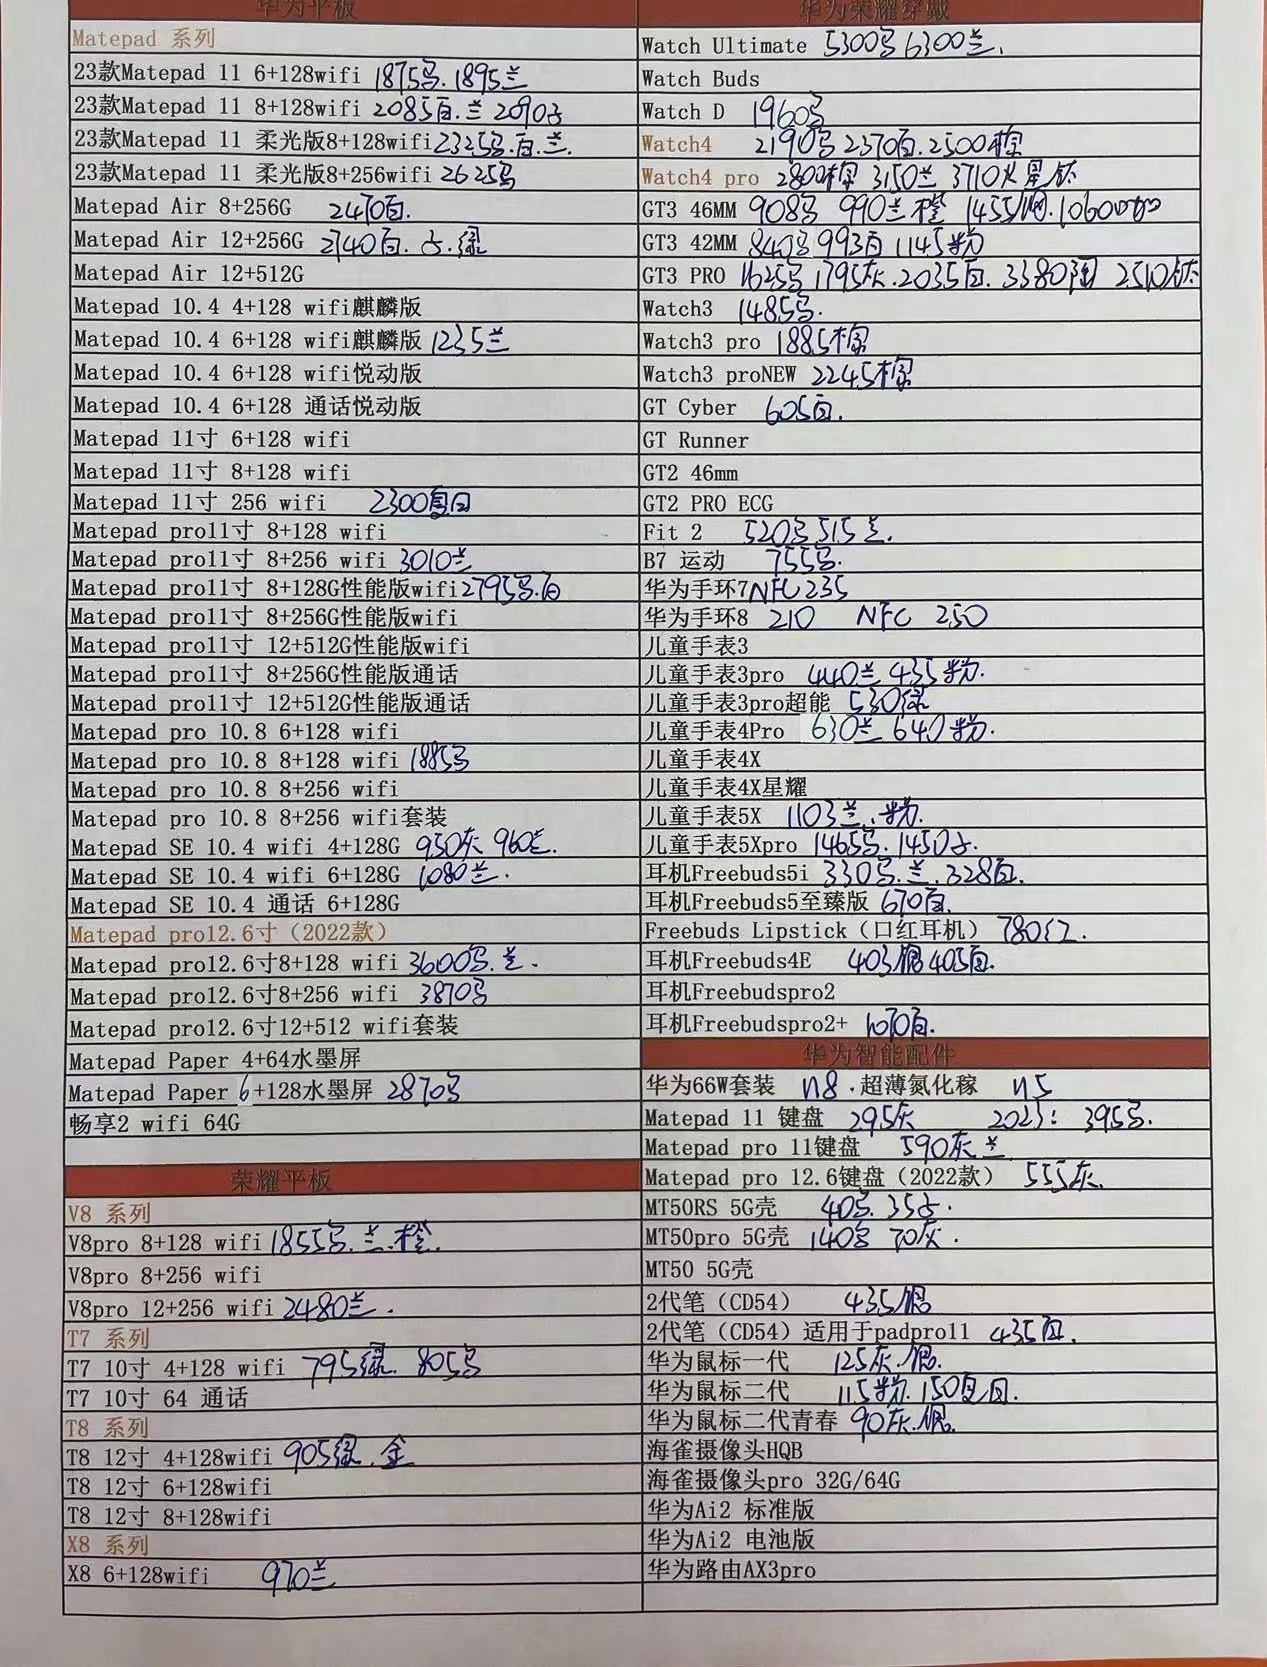 华为平板
Matepad 系列
23款Matepad 11 6+128wifi 1875 1895兰
23款Matepad 11 8+128wifi 2085白.兰 2090
23款Matepad 11 柔光版8+128wifi 2325 .白.兰.
23款Matepad 11 柔光版8+256wifi 2625
Matepad Air 8+256G 2470白.
Matepad Air 12+256G 2740白. 绿
Matepad Air 12+512G
Matepad 10.4 4+128 wifi麒麟版
Matepad 10.4 6+128 wifi麒麟版 1235兰
Matepad 10.4 6+128 wifi悦动版
Matepad 10.4 6+128 通话悦动版
Matepad 11寸 6+128 wifi
Matepad 11寸 8+128 wifi
Matepad 11寸 256 wifi 2300
Matepad pro11寸 8+128 wifi
Matepad pro11寸 8+256 wifi 3010兰
Matepad pro11寸 8+128G性能版wifi 2795 .白
Matepad pro11寸 8+256G性能版wifi
Matepad pro11寸 12+512G性能版wifi
Matepad pro11寸 8+256G性能版通话
Matepad pro11寸 12+512G性能版通话
Matepad pro 10.8 6+128 wifi
Matepad pro 10.8 8+128 wifi 1885
Matepad pro 10.8 8+256 wifi
Matepad pro 10.8 8+256 wifi套装
Matepad SE 10.4 wifi 4+128G 950灰 960兰.
Matepad SE 10.4 wifi 6+128G 1080兰.
Matepad SE 10.4 通话 6+128G
Matepad pro12.6寸（2022款）
Matepad pro12.6寸8+128 wifi 3600 .兰.
Matepad pro12.6寸8+256 wifi 3870
Matepad pro12.6寸12+512 wifi套装
Matepad Paper 4+64水墨屏
Matepad Paper 6+128水墨屏 2870
畅享2 wifi 64G
荣耀平板
V8 系列
V8pro 8+128 wifi 1855 .兰.橙.
V8pro 8+256 wifi
V8pro 12+256 wifi 2480兰.
T7 系列
T7 10寸 4+128 wifi 795绿. 805
T7 10寸 64 通话
T8 系列
T8 12寸 4+128wifi 905绿.金
T8 12寸 6+128wifi
T8 12寸 8+128wifi
X8 系列
X8 6+128wifi 970兰
华为荣耀穿戴
Watch Ultimate 5300 6300兰.
Watch Buds
Watch D 1960
Watch4 2190 2370白.2500棕
Watch4 pro 2800棕 3150兰 3710
GT3 46MM 908 990兰橙 1455钢.1060
GT3 42MM 840 993白 1145粉
GT3 PRO 1625 1795灰.2035白.3380陶 2510钛
Watch3 1485 .
Watch3 pro 1885棕
Watch3 proNEW 2245棕
GT Cyber 605白.
GT Runner
GT2 46mm
GT2 PRO ECG
Fit 2 520 515兰.
B7 运动 755 .
华为手环7NFC 235
华为手环8 210 NFC 250
儿童手表3
儿童手表3pro 440兰 435粉.
儿童手表3pro超能 530绿
儿童手表4Pro 630兰 640粉.
儿童手表4X
儿童手表4X星耀
儿童手表5X 1103兰.粉.
儿童手表5Xpro 1465 .1450
耳机Freebuds5i 330 .兰.328白.
耳机Freebuds5至臻版 670白.
Freebuds Lipstick（口红耳机） 780红.
耳机Freebuds4E 403银 405白.
耳机Freebudspro2
耳机Freebudspro2+ 1070白.
华为智能配件
华为66W套装 118 .超薄氮化稼 115
Matepad 11 键盘 295灰 2023: 395 .
Matepad pro 11键盘 590灰兰
Matepad pro 12.6键盘（2022款） 555灰.
MT50RS 5G壳 40 . 35
MT50pro 5G壳 140 70灰.
MT50 5G壳
2代笔（CD54） 435银
2代笔（CD54）适用于padpro11 435白.
华为鼠标一代 125灰.银.
华为鼠标二代 115粉.150
华为鼠标二代青春 90灰.银.
海雀摄像头HQB
海雀摄像头pro 32G/64G
华为Ai2 标准版
华为Ai2 电池版
华为路由AX3pro